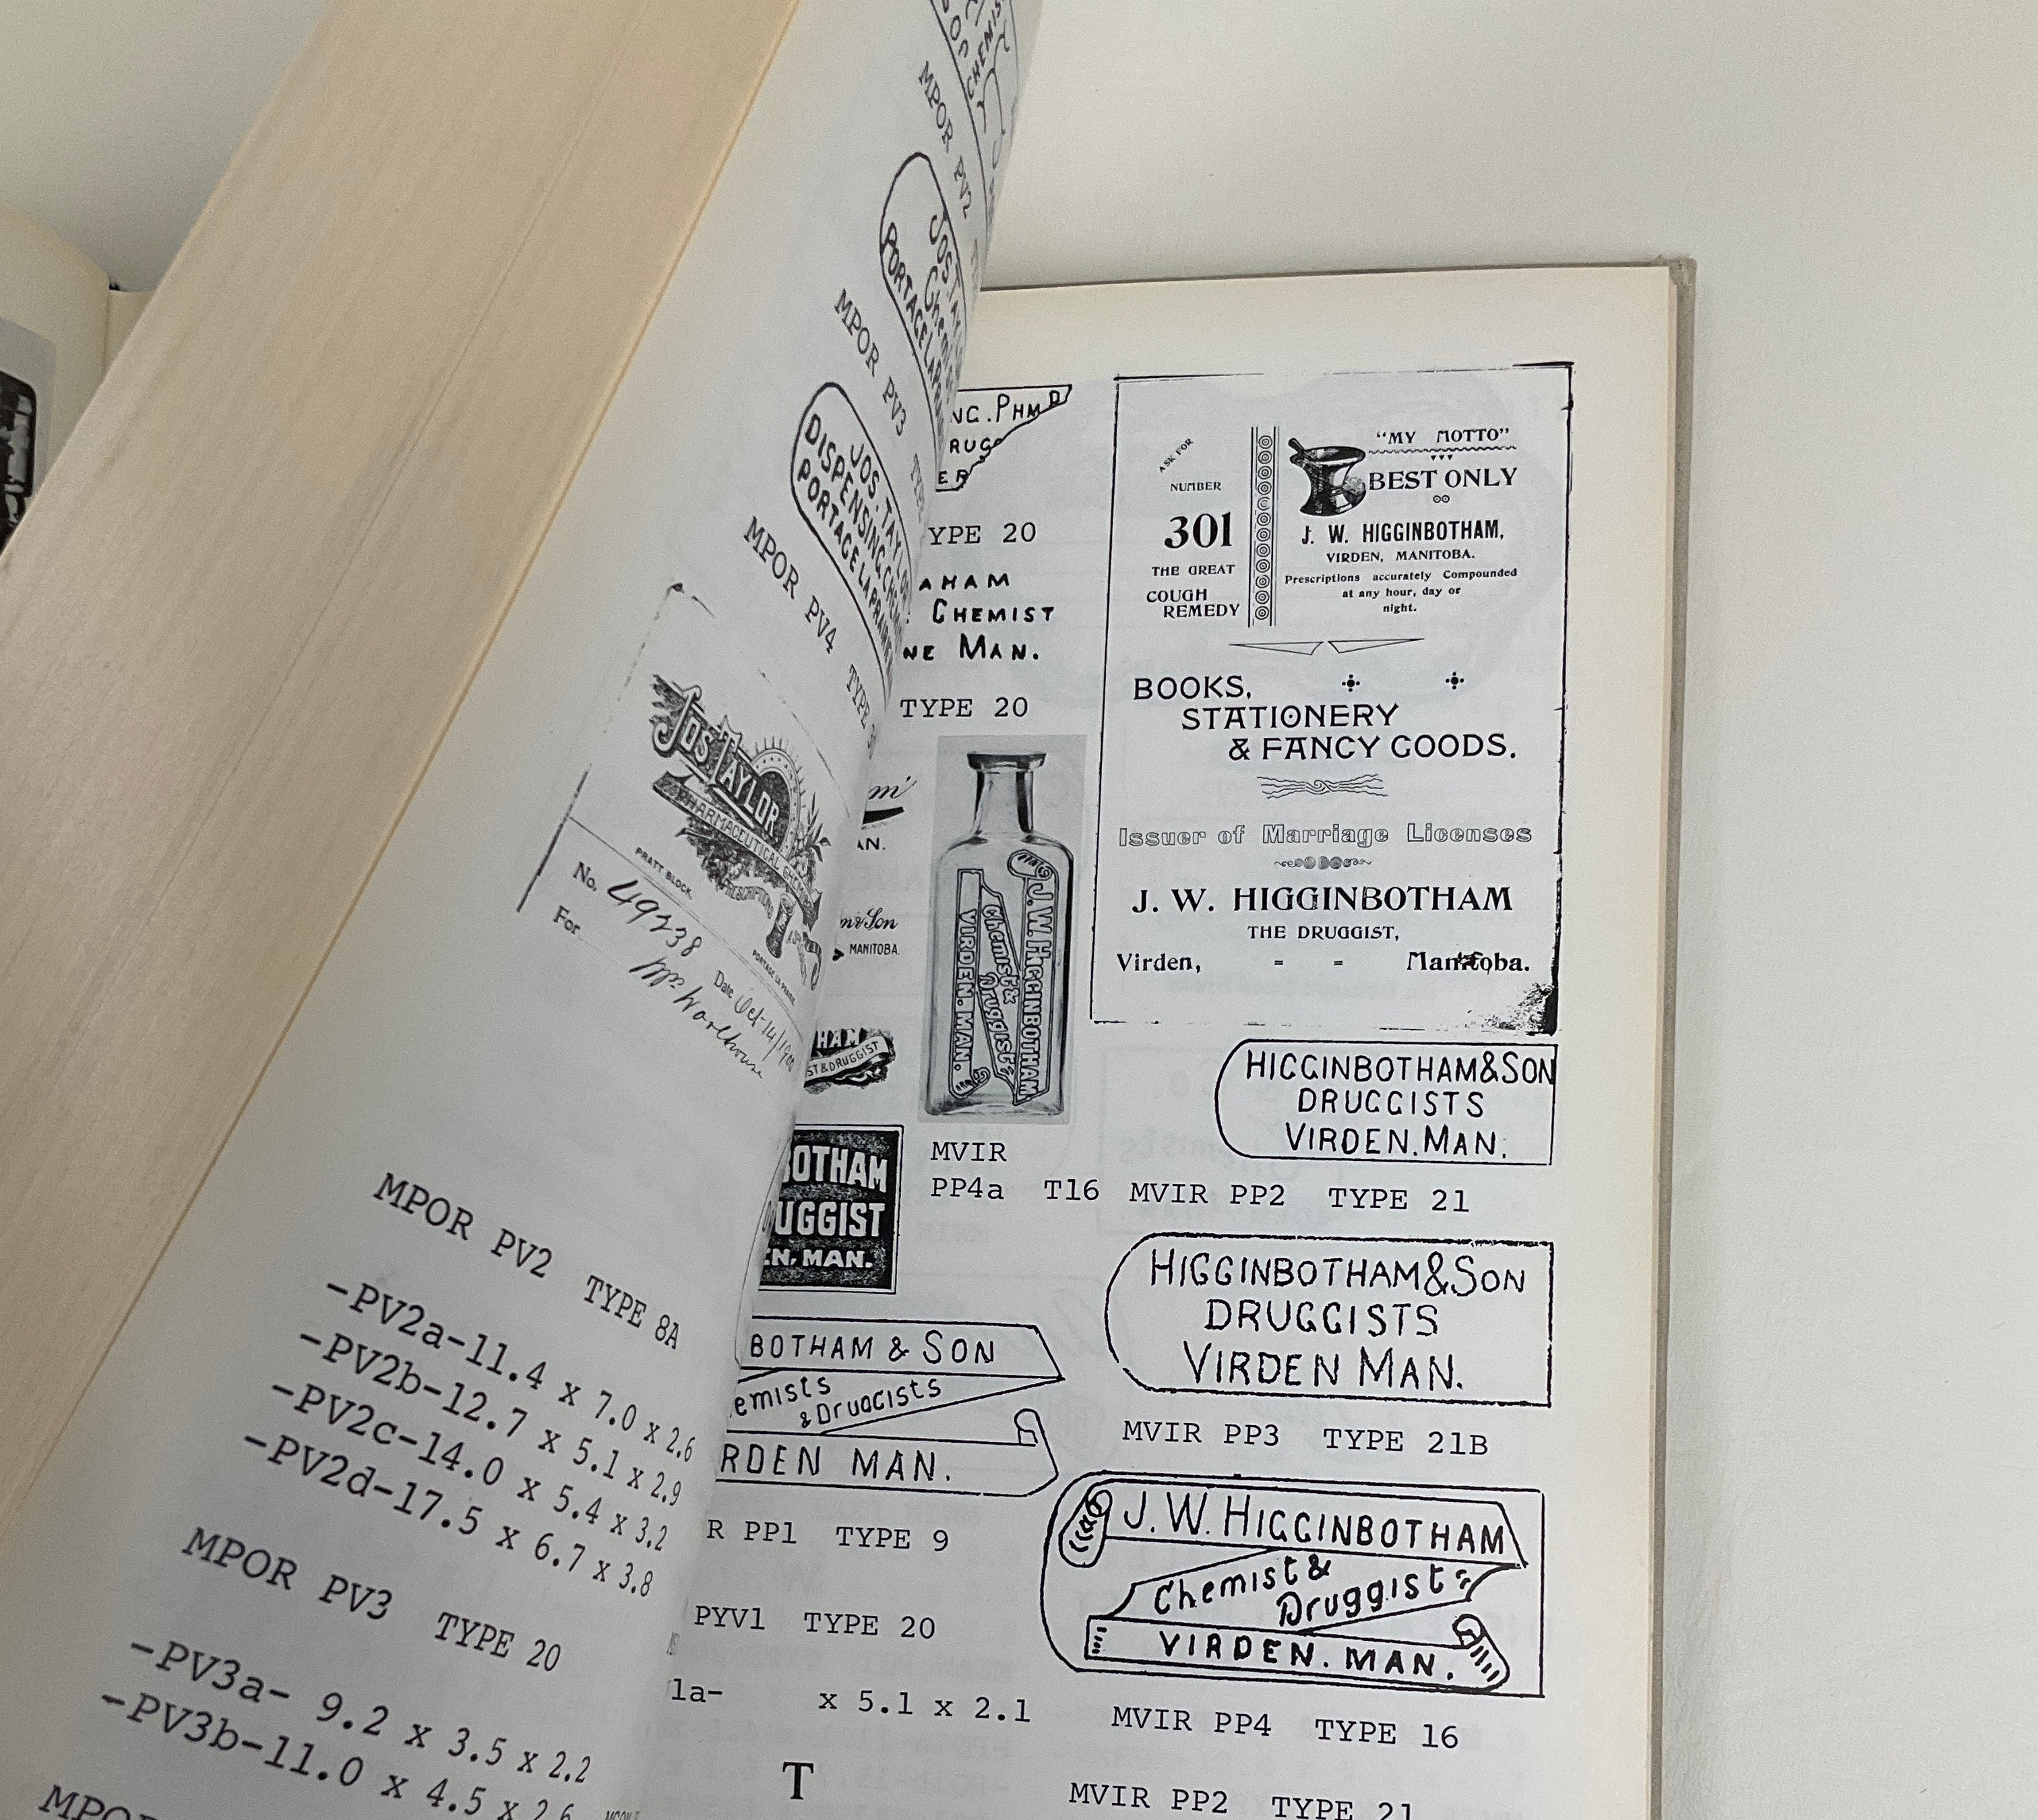 CHEMIS
MPOR PV2
JOS. TAY
Chemis
PORTAGE LAPRA
MPOR PV3 TYPE
JOS. TAYLOR
DISPENSING CHEM
PORTAGE LA PRAIRIE
MPOR PV4 TYPE
JOS TAYLOR
PHARMACEUTICAL CHEMIST
PRESCRIPTIONS
PRATT BLOCK.
PORTAGE LA PRAIRIE.
No. 49238 Date Oct 14/19
For
MPOR PV2 TYPE 8A
-PV2a-11.4 x 7.0 x 2.6
-PV2b-12.7 x 5.1 x 2.9
-PV2c-14.0 x 5.4 x 3.2
-PV2d-17.5 x 6.7 x 3.8
MPOR PV3 TYPE 20
-PV3a- 9.2 x 3.5 x 2.2
-PV3b-11.0 x 4.5 x 2.6
MPOR
NG. PHM D
RUGG
ER
YPE 20
AHAM
CHEMIST
NE MAN.
TYPE 20
m'
AN.
m & Son
MANITOBA.
HAM
ST & DRUGGIST
BOTHAM
UGGIST
EN, MAN.
J. W. HIGGINBOTHAM
Chemist &
Druggist
VIRDEN. MAN.
MVIR
PP4a T16
BOTHAM & SON
emists
& Druggists
RDEN MAN.
R PP1 TYPE 9
PYV1 TYPE 20
1a- x 5.1 x 2.1
T
ASK FOR
NUMBER
301
THE GREAT
COUGH
REMEDY
"MY MOTTO"
BEST ONLY
J. W. HIGGINBOTHAM,
VIRDEN, MANITOBA.
Prescriptions accurately Compounded
at any hour, day or
night.
BOOKS,
STATIONERY
& FANCY GOODS.
Issuer of Marriage Licenses
J. W. HIGGINBOTHAM
THE DRUGGIST,
Virden, - - Manitoba.
HIGGINBOTHAM & SON
DRUGGISTS
VIRDEN. MAN.
MVIR PP2 TYPE 21
HIGGINBOTHAM & SON
DRUGGISTS
VIRDEN MAN.
MVIR PP3 TYPE 21B
J. W. HIGGINBOTHAM
Chemist &
Druggist
VIRDEN. MAN.
MVIR PP4 TYPE 16
MVIR PP2 TYPE 21